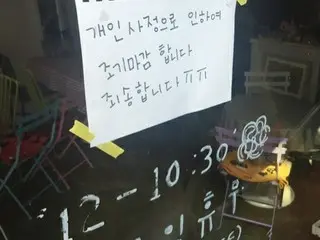 개인사정으로 인하여
조기마감 합니다
죄송합니다 ㅠㅠ
12-10:30
휴무